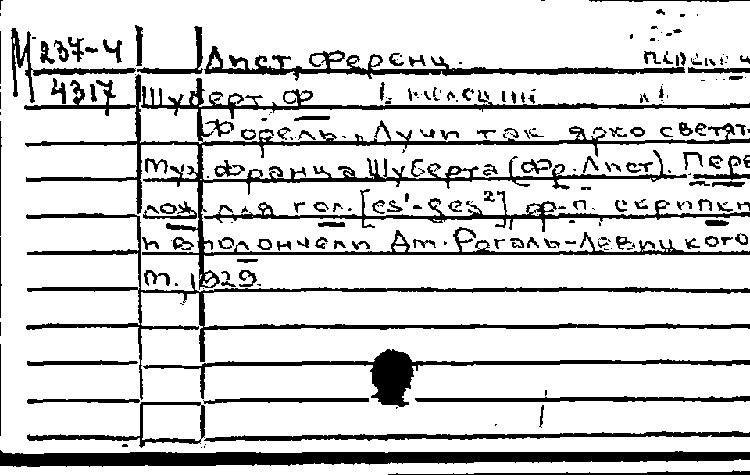 М 237-4 Лист, Ференц.
4317 Шуберт, Ф
Форель. „Лучи так ярко светят
Муз. Франца Шуберта (Фр. Лист). Пере
лож. для гол. [es¹-ges²], ф-п. скрипки
и виолончели Дм. Рогаль-Левицкого
М. 1929.